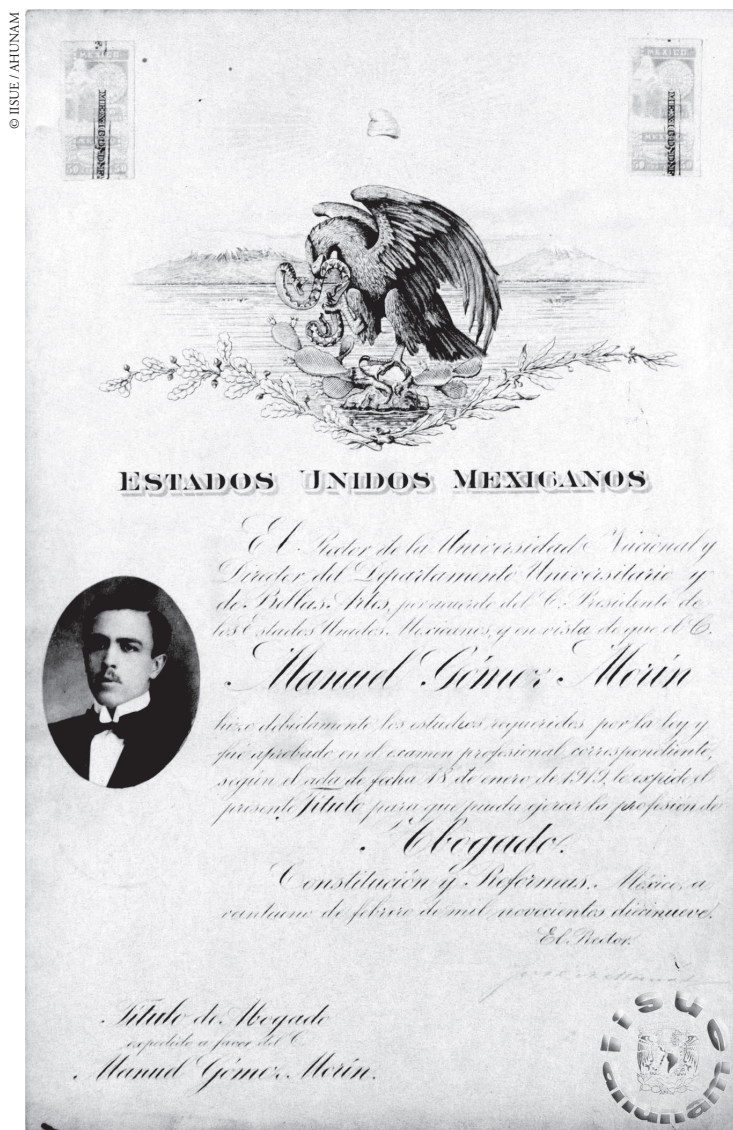 © IISUE / AHUNAM
MEXICO
MEXICO
ESTADOS UNIDOS MEXICANOS
El Rector de la Universidad Nacional y
Director del Departamento Universitario y
de Bellas Artes, por acuerdo del C. Presidente de
los Estados Unidos Mexicanos, y en vista de que el C.
Manuel Gómez Morin
hizo debidamente los estudios requeridos por la ley y
fué aprobado en el examen profesional correspondiente,
según el acta de fecha 18 de enero de 1919, le expide el
presente Título para que pueda ejercer la profesión de
Abogado.
Constitución y Reformas. México, a
veintiuno de febrero de mil novecientos diecinueve.
El Rector.
Título de Abogado
expedido a favor del C.
Manuel Gómez Morin.
iisue
ahunam